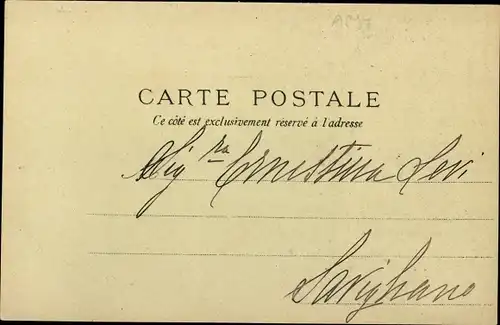 CARTE POSTALE
Ce côté est exclusivement réservé à l'adresse
Sig.ra Ernestina Levi
Savigliano